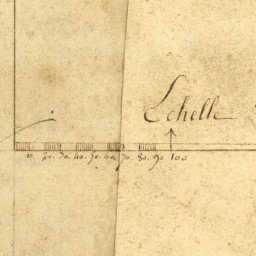 Echelle
10. 20. 30. 40. 50. 60. 70. 80. 90. 100